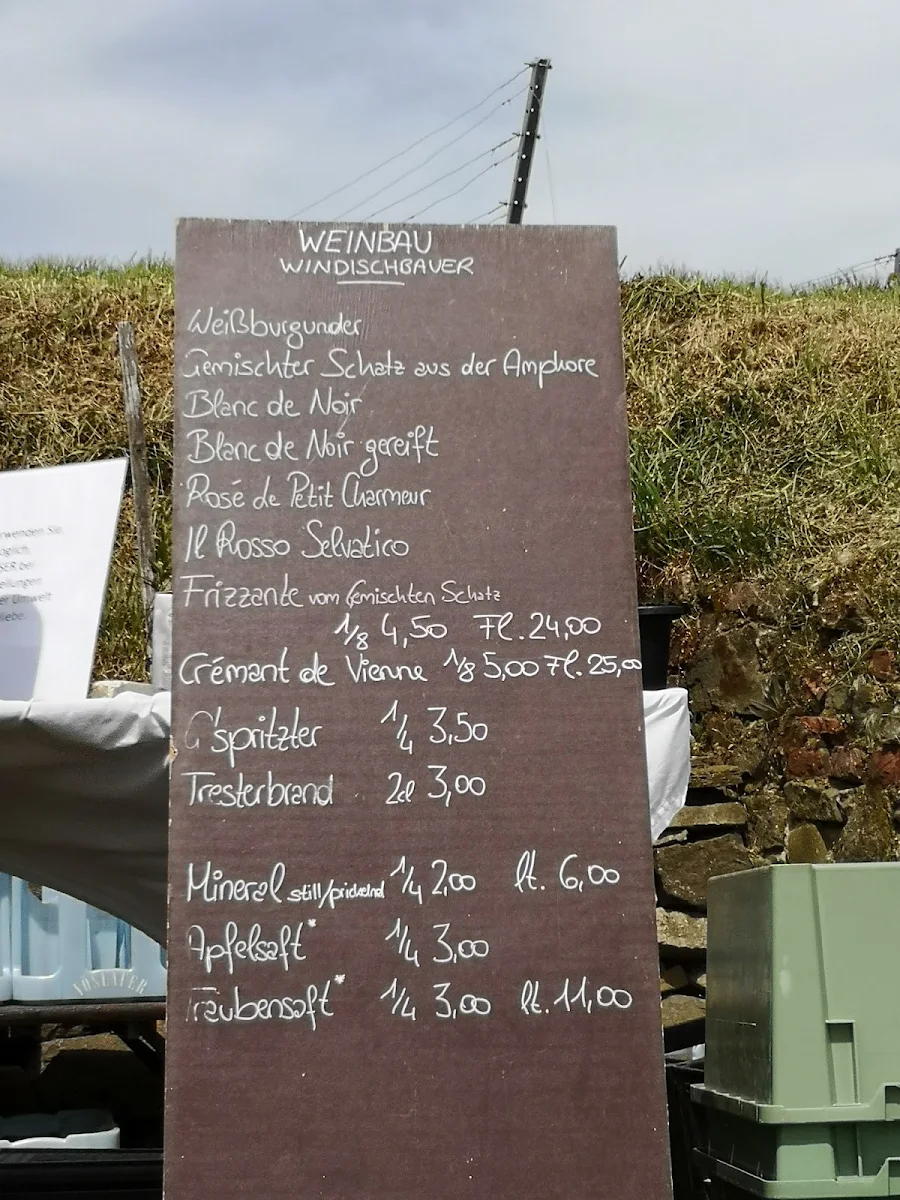 WEINBAU
WINDISCHBAUER
Weißburgunder
Gemischter Schatz aus der Amphore
Blanc de Noir
Blanc de Noir gereift
Rosé de Petit Charmeur
Il Rosso Selvatico
Frizzante vom Gemischten Schatz
1/8 4,50 Fl. 24,00
Crémant de Vienne 1/8 5,00 Fl. 25,00
G'spritzter 1/4 3,50
Tresterbrand 2cl 3,00
Mineral still/prickelnd 1/4 2,00 lt. 6,00
Apfelsaft* 1/4 3,00
Traubensaft* 1/4 3,00 lt. 11,00
rwenden Sie
öglich
SER bei
ellungen
er Umwelt
liebe.
VÖSLAUER